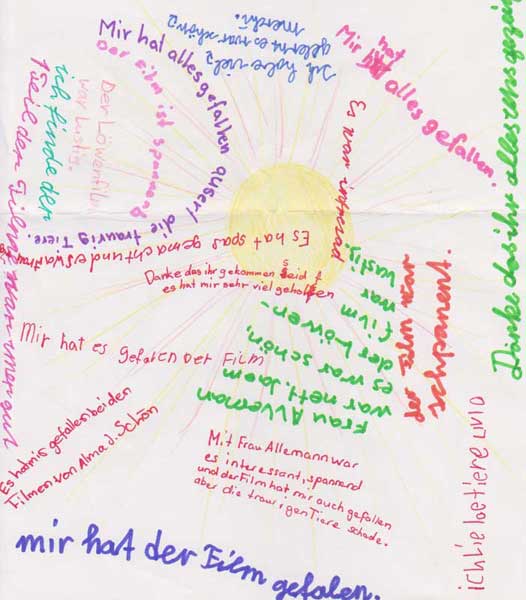 Mir hat alles gefallen auserl die traurig Tiere.
Ich habe viel
gelernt es war schön
merchi.
Mir hat alles gefallen.
Danke das ihr alles
Der Film ist spannend
Der Löwenfilm
war lustig.
ich finde der
Teil der
Es war
Es hat spas gemacht und es war
Danke das ihr gekommen seid
es hat mir sehr viel geholfen
Mir hat es gefallen Der Film
der Film war
schpanent.
Frau Alleman
war nett.
es war schön,
der Löwen-
film
war
lustig
Es hat mir gefallen bei den
Filmen von Alma J. Schön
Mit Frau Allemann war
es interessant, spannend
und der Film hat mir auch gefallen
aber die traurigen Tiere schade.
ich liebe tiere und
mir hat der Film gefalen.